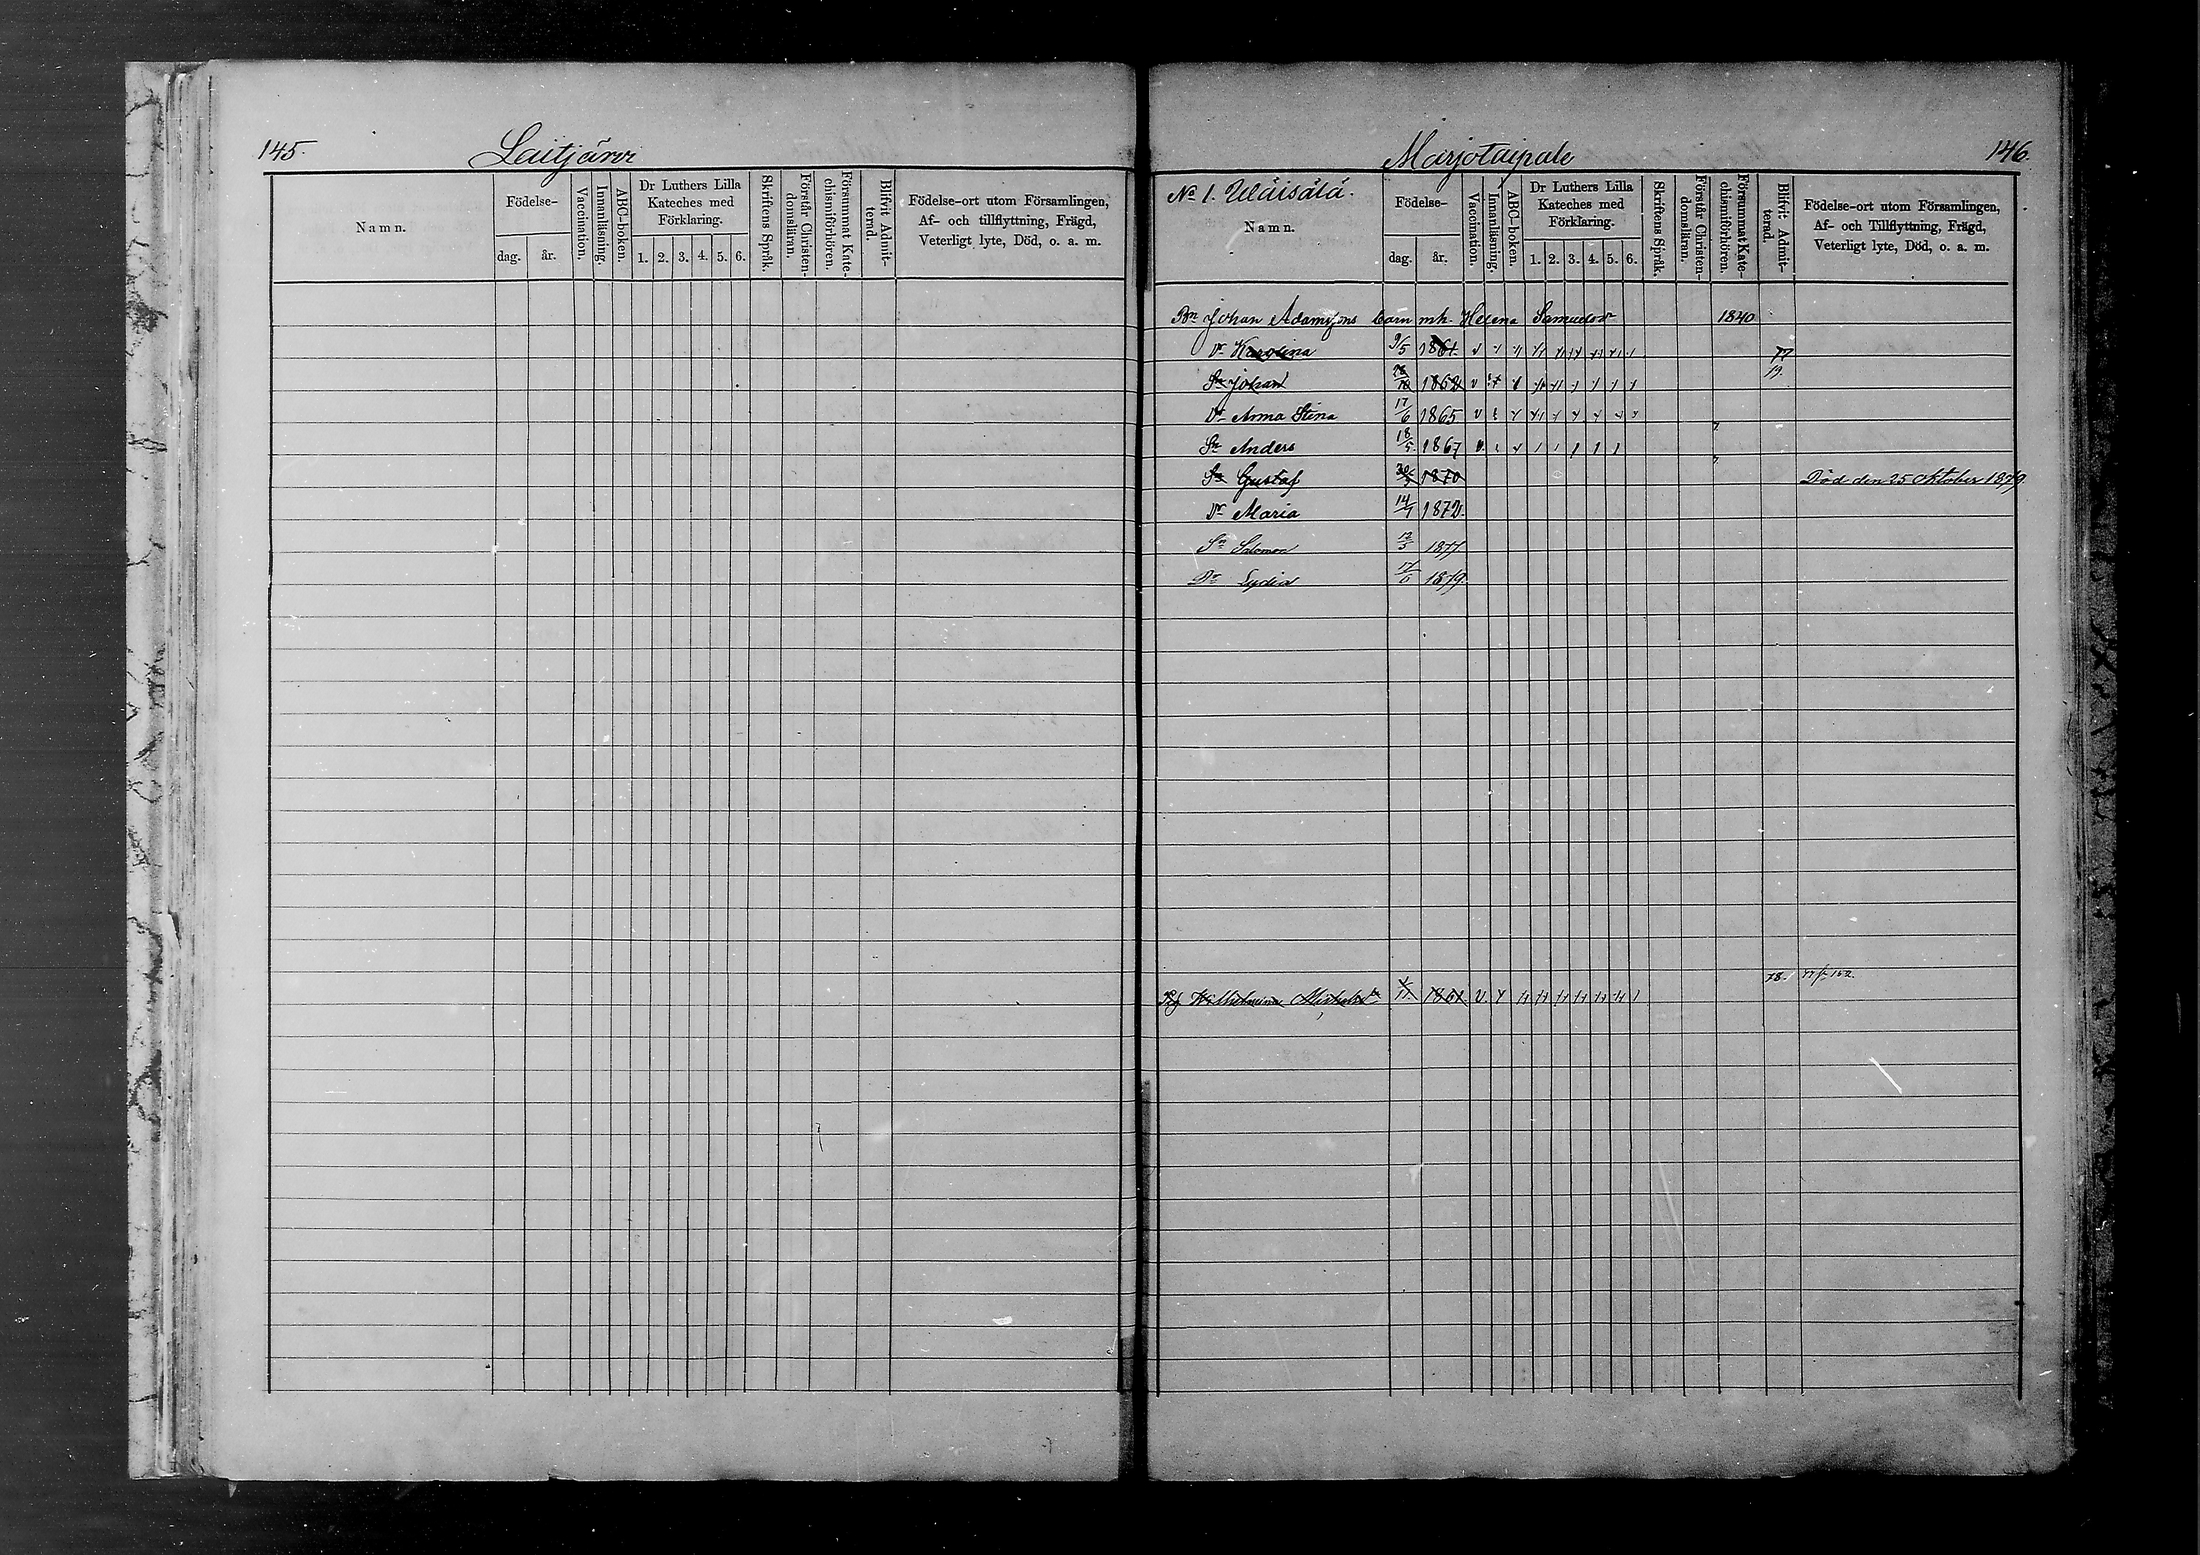 145.
Laitjärvi
Namn.
Födelse-
dag.
år.
Vaccination.
Innanläsning.
ABC-boken.
Dr Luthers Lilla
Kateches med
Förklaring.
1. 2. 3. 4. 5. 6.
Skriftens Språk.
Förstår Christen-
domsläran.
Försummat Kate-
chismiförhören.
Blifvit Admit-
terad.
Födelse-ort utom Församlingen,
Af- och tillflyttning, Frägd,
Veterligt lyte, Död, o. a. m.
Marjotaipale
146.
No 1. Uläisälä.
Namn.
Födelse-
dag.
år.
Vaccination.
Innanläsning.
ABC-boken.
Dr Luthers Lilla
Kateches med
Förklaring.
1. 2. 3. 4. 5. 6.
Skriftens Språk.
Förstår Christen-
domsläran.
Försummat Kate-
chismiförhören.
Blifvit Admit-
terad.
Födelse-ort utom Församlingen,
Af- och Tillflyttning, Frägd,
Veterligt lyte, Död, o. a. m.
Bn Johan Adamssons barn mh. Helena Samuelsdr 1840
Dr Karolina 9/5 1861. 77
Sn Johan 1862 79.
Dr Anna Stina 17/6 1865 v
Sn Anders 18/5 1867
Sn Gustaf 1870 Död den 25 Oktober 1879.
Dr Maria 14/7 1872.
Sn Salomon 12/5 1877
Dr Lydia 17/6 1879.
78.
Wilhelmina 1861 v.